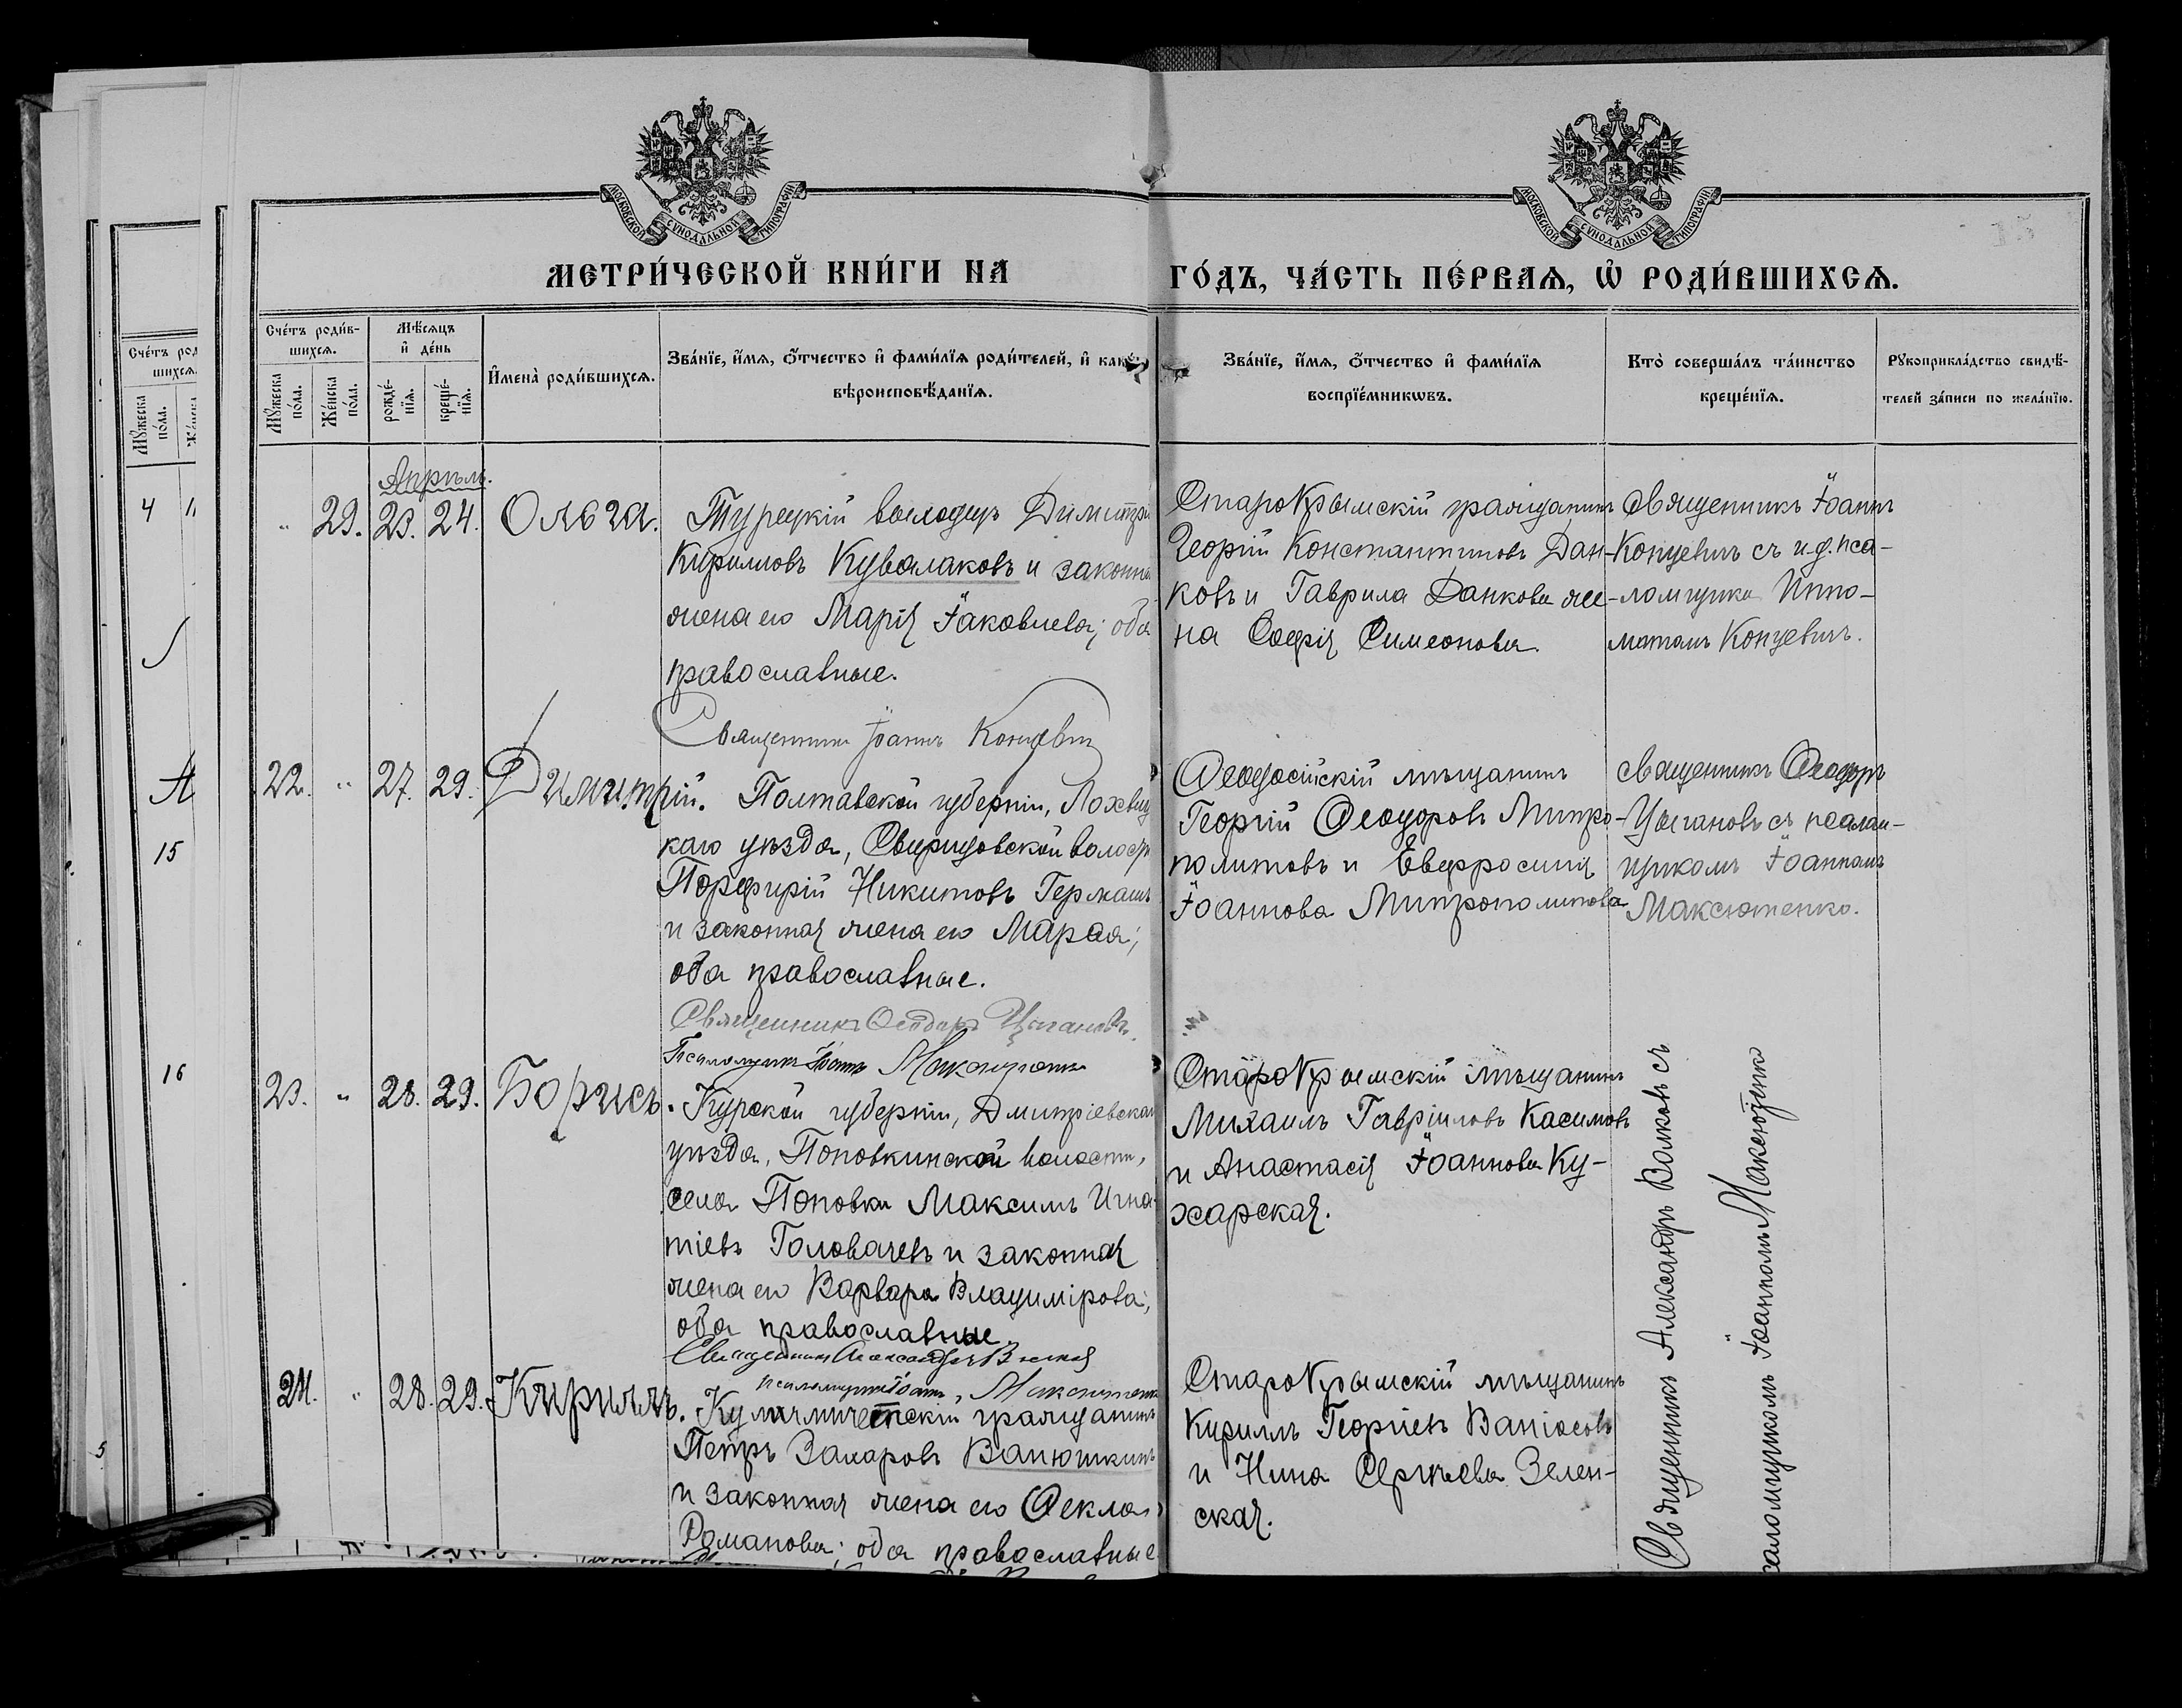 МОСКОВСКОЙ СѴНОДАЛЬНОЙ ТИПОГРАФІИ
МОСКОВСКОЙ СѴНОДАЛЬНОЙ ТИПОГРАФІИ
МЕТРИ́ЧЕСКОЙ КНИ́ГИ НА
ГО́ДЪ, ЧА́СТЬ ПЕ́РВАѦ, Ѡ҆ РОДИ́ВШИХСѦ.
Сче́тъ роди́в-
шихсѧ.
Мѣ́сѧцъ
и҆ де́нь
Мꙋ́жеска по́ла.
Же́нска по́ла.
рожде́-
нїѧ.
креще́-
нїѧ.
И҆мена̀ роди́вшихсѧ.
Зва́нїе, и҆́мѧ, ѻ҆́тчество и҆ фами́лїѧ роди́телей, и҆ как
вѣроисповѣ́данїѧ.
Зва́нїе, и҆́мѧ, ѻ҆́тчество и҆ фами́лїѧ
воспрїе́мникѡвъ.
Кто̀ соверша́лъ та́инство
креще́нїѧ.
Рꙋкоприкла́дство свидѣ́-
телей за́писи по жела́нїю.
Апрѣль.
" 29. 23. 24. Ольга.
Турецкій выходецъ Димитрі
Кирилловъ Кувалаковъ и законна
жена его Марія Іаковлева; оба
православные.
Священникъ Іоаннъ Концевич
СтароКрымскій гражданинъ
Георгій Константиновъ Дан-
ковъ и Гаврила Данкова же-
на Софія Симеонова.
Священникъ Іоаннъ
Концевичъ съ и.д. пса-
ломщика Иппо-
литомъ Концевичъ.
22. " 27. 29. Димитрій.
Полтавской губерніи, Лохвиц
каго уѣзда, Свиридовской волости
Порфирій Никитовъ Германъ
и законная жена его Марѳа;
оба православные.
Священникъ Ѳеодоръ Цыгановъ.
Псаломщикъ Іоаннъ Максютенко
Ѳеодосійскій мѣщанинъ
Георгій Ѳеодоровъ Митро-
политовъ и Евфросинія
Іоаннова Митрополитова
Священникъ Ѳеодоръ
Цыгановъ съ псалом-
щикомъ Іоанномъ
Максютенко.
23. " 28. 29. Борисъ.
Курской губерніи, Дмитріевскаго
уѣзда, Поповкинской волости,
села Поповки Максимъ Игна-
тіевъ Головачевъ и законная
жена его Варвара Владимірова;
оба православные.
Священникъ Александръ Валковъ
псаломщикъ Іоаннъ Максютенко
СтароКрымскій мѣщанинъ
Михаилъ Гавріиловъ Касимовъ
и Анастасія Іоаннова Ку-
харская.
Священникъ Александръ Валковъ съ
саломщикомъ Іоанномъ Максютенко
24. " 28. 29. Кириллъ.
гражданинъ
Петръ Захаровъ Ванюшкинъ
и законная жена его Ѳекла
Романова; оба православные
СтароКрымскій мѣщанинъ
Кириллъ Георгіевъ
и Нина Сергѣева Зелен-
ская.
Сче́тъ род
шихсѧ.
Мꙋ́жеска по́ла.
4
15
16
5